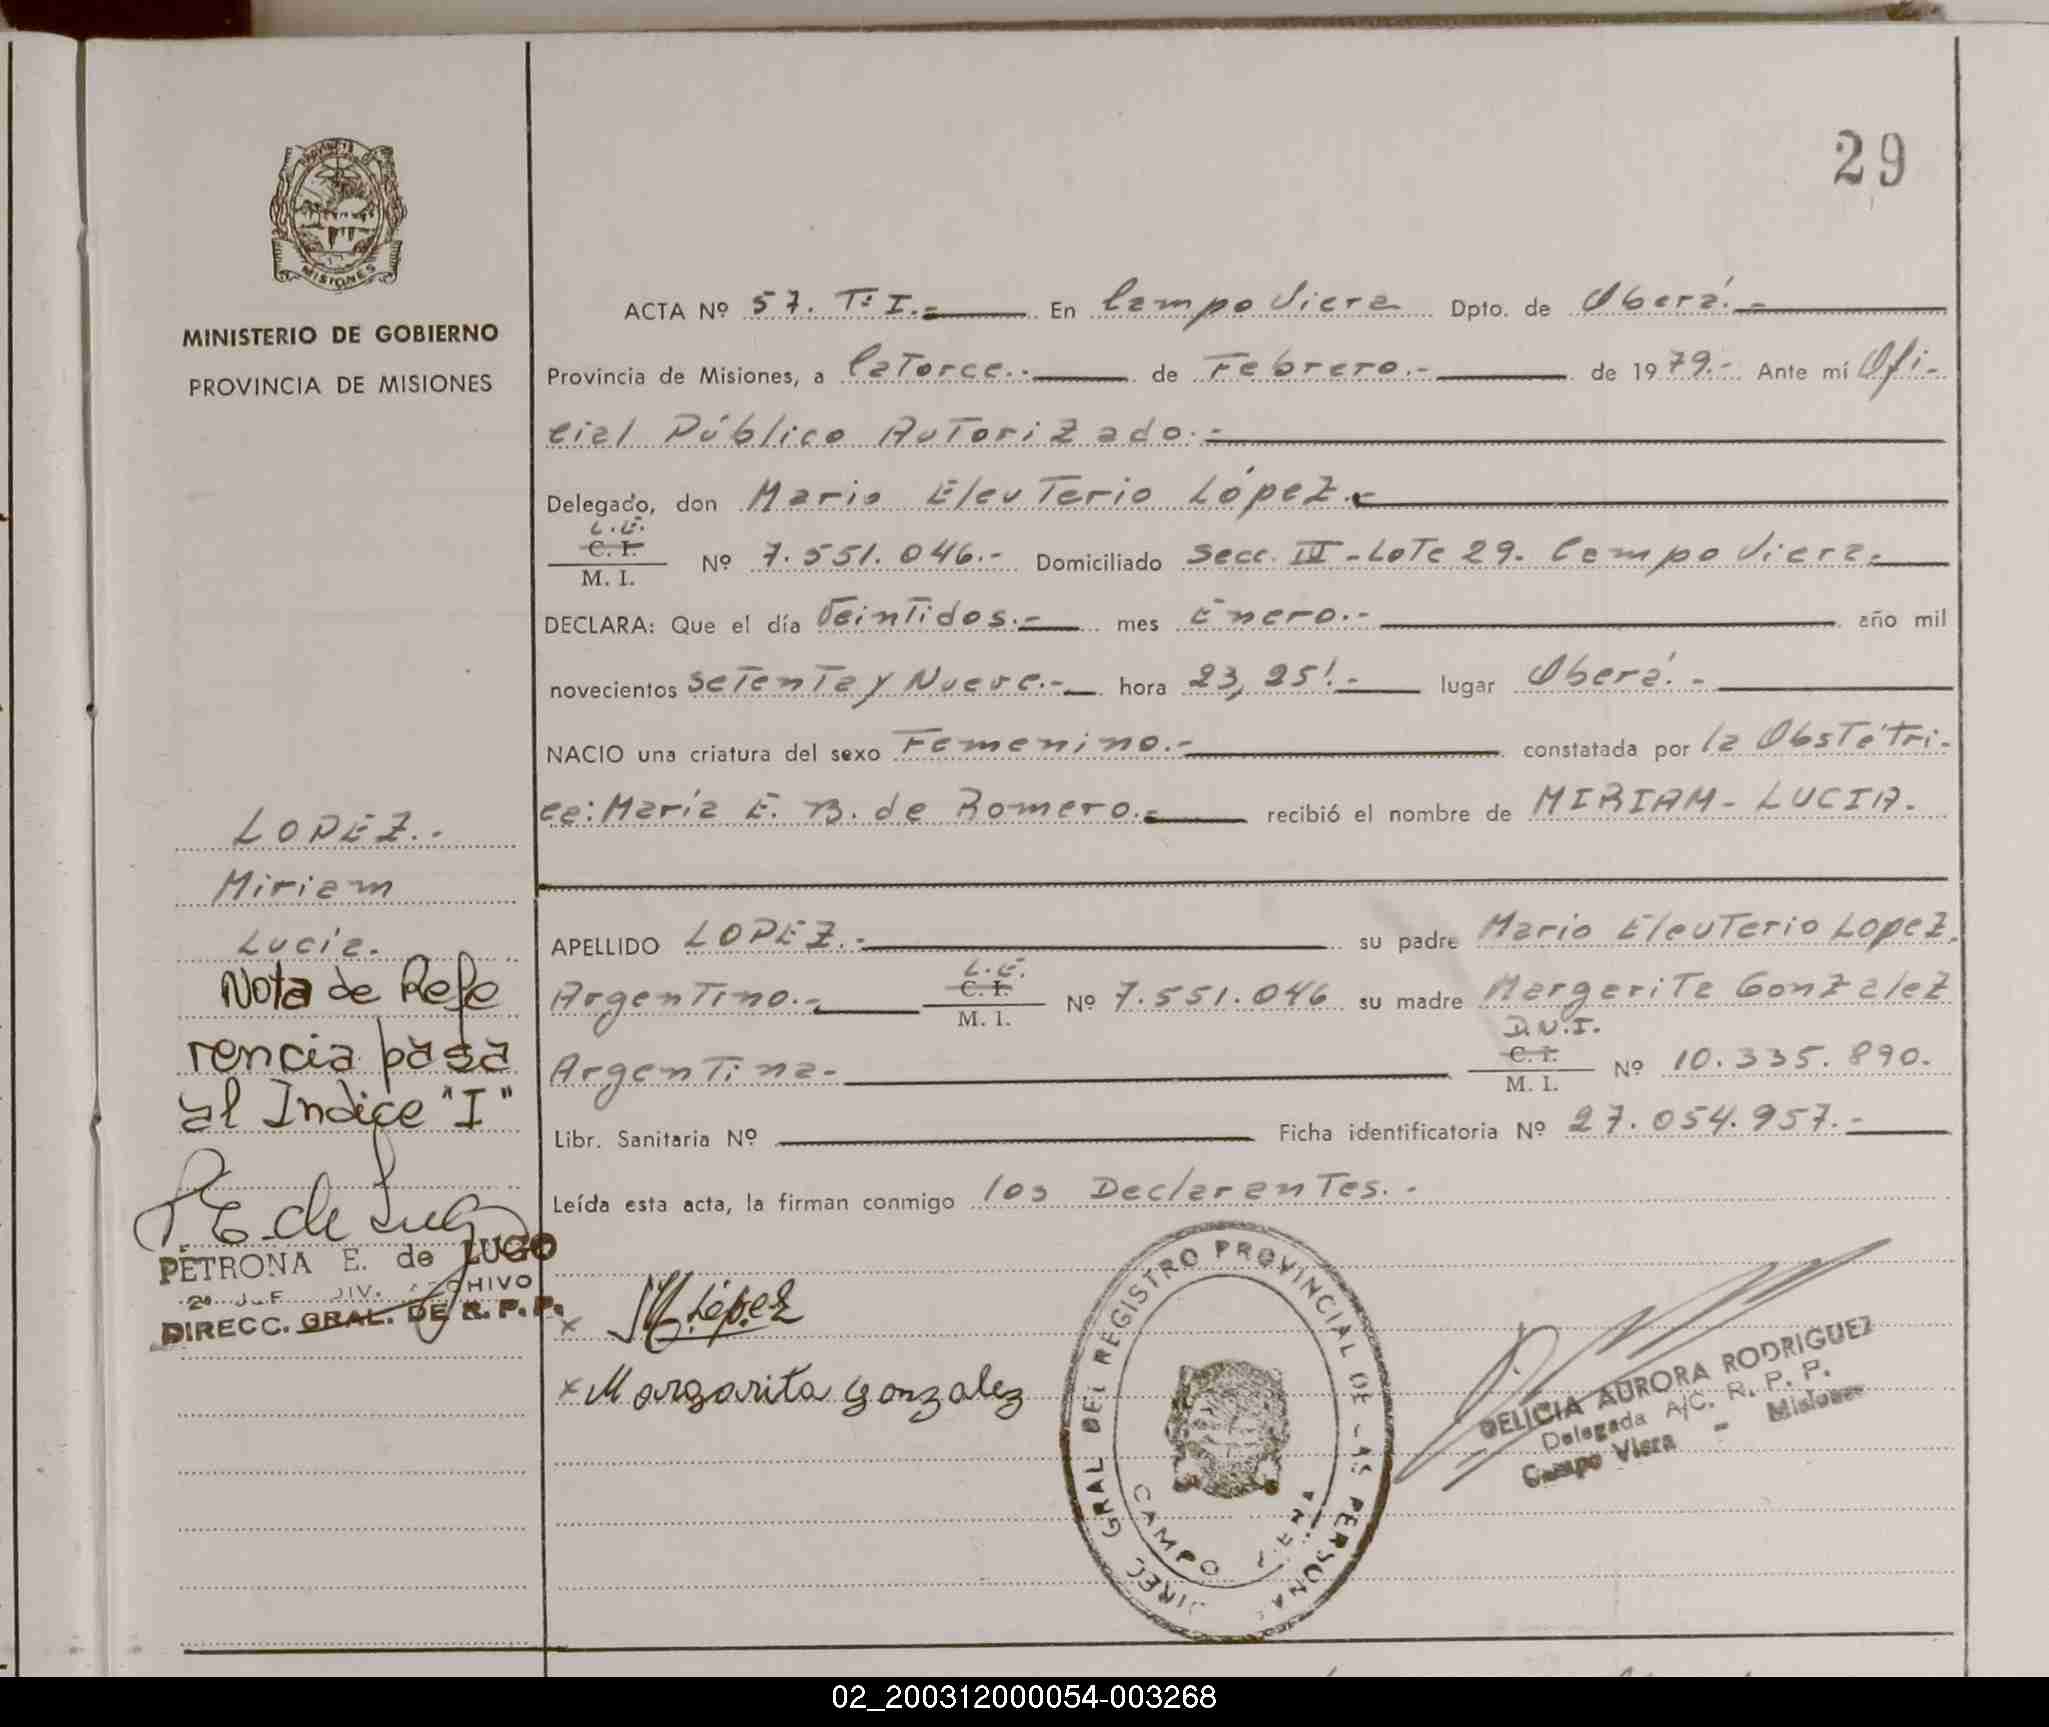 29
PROVINCIA DE
MISIONES
MINISTERIO DE GOBIERNO
PROVINCIA DE MISIONES
ACTA Nº 57. Tº I.- En Campo Viera Dpto. de Oberá.-
Provincia de Misiones, a Catorce.- de Febrero.- de 1979.- Ante mí Ofi-
cial Público Autorizado.-
Delegado, don Mario Eleuterio López.-
L.E.
C. I.
M. I.
Nº 7.551.046.- Domiciliado Secc. III - Lote 29. Campo Viera.-
DECLARA: Que el día Veintidos.- mes Enero.- año mil
novecientos Setenta y Nueve.- hora 23,25'.- lugar Oberá.-
NACIO una criatura del sexo Femenino.- constatada por la Obstétri-
ca: María E. B. de Romero.- recibió el nombre de MIRIAM - LUCIA.
APELLIDO LOPEZ.- su padre Mario Eleuterio Lopez.
L.E.
C. I.
M. I.
Argentino.- Nº 7.551.046 su madre Margarita Gonzalez
D.N.I.
C. I.
M. I.
Argentina- Nº 10.335.890.
Libr. Sanitaria Nº Ficha identificatoria Nº 27.054.957.-
Leída esta acta, la firman conmigo los Declarantes.-
LOPEZ.-
Miriam
Lucía.
Nota de Refe
rencia pasa
al Indice "I"
P E. de Lugo
PETRONA E. de LUGO
DIV. ARCHIVO
DIRECC. GRAL. DE R. P. P.
x M. López
x Margarita Gonzalez
DIREC GRAL DEL REGISTRO PROVINCIAL DE LAS PERSONAS
CAMPO VIERA
DELICIA AURORA RODRIGUEZ
Delegada A/C. R. P. P.
Campo Viera - Misiones
02_200312000054-003268